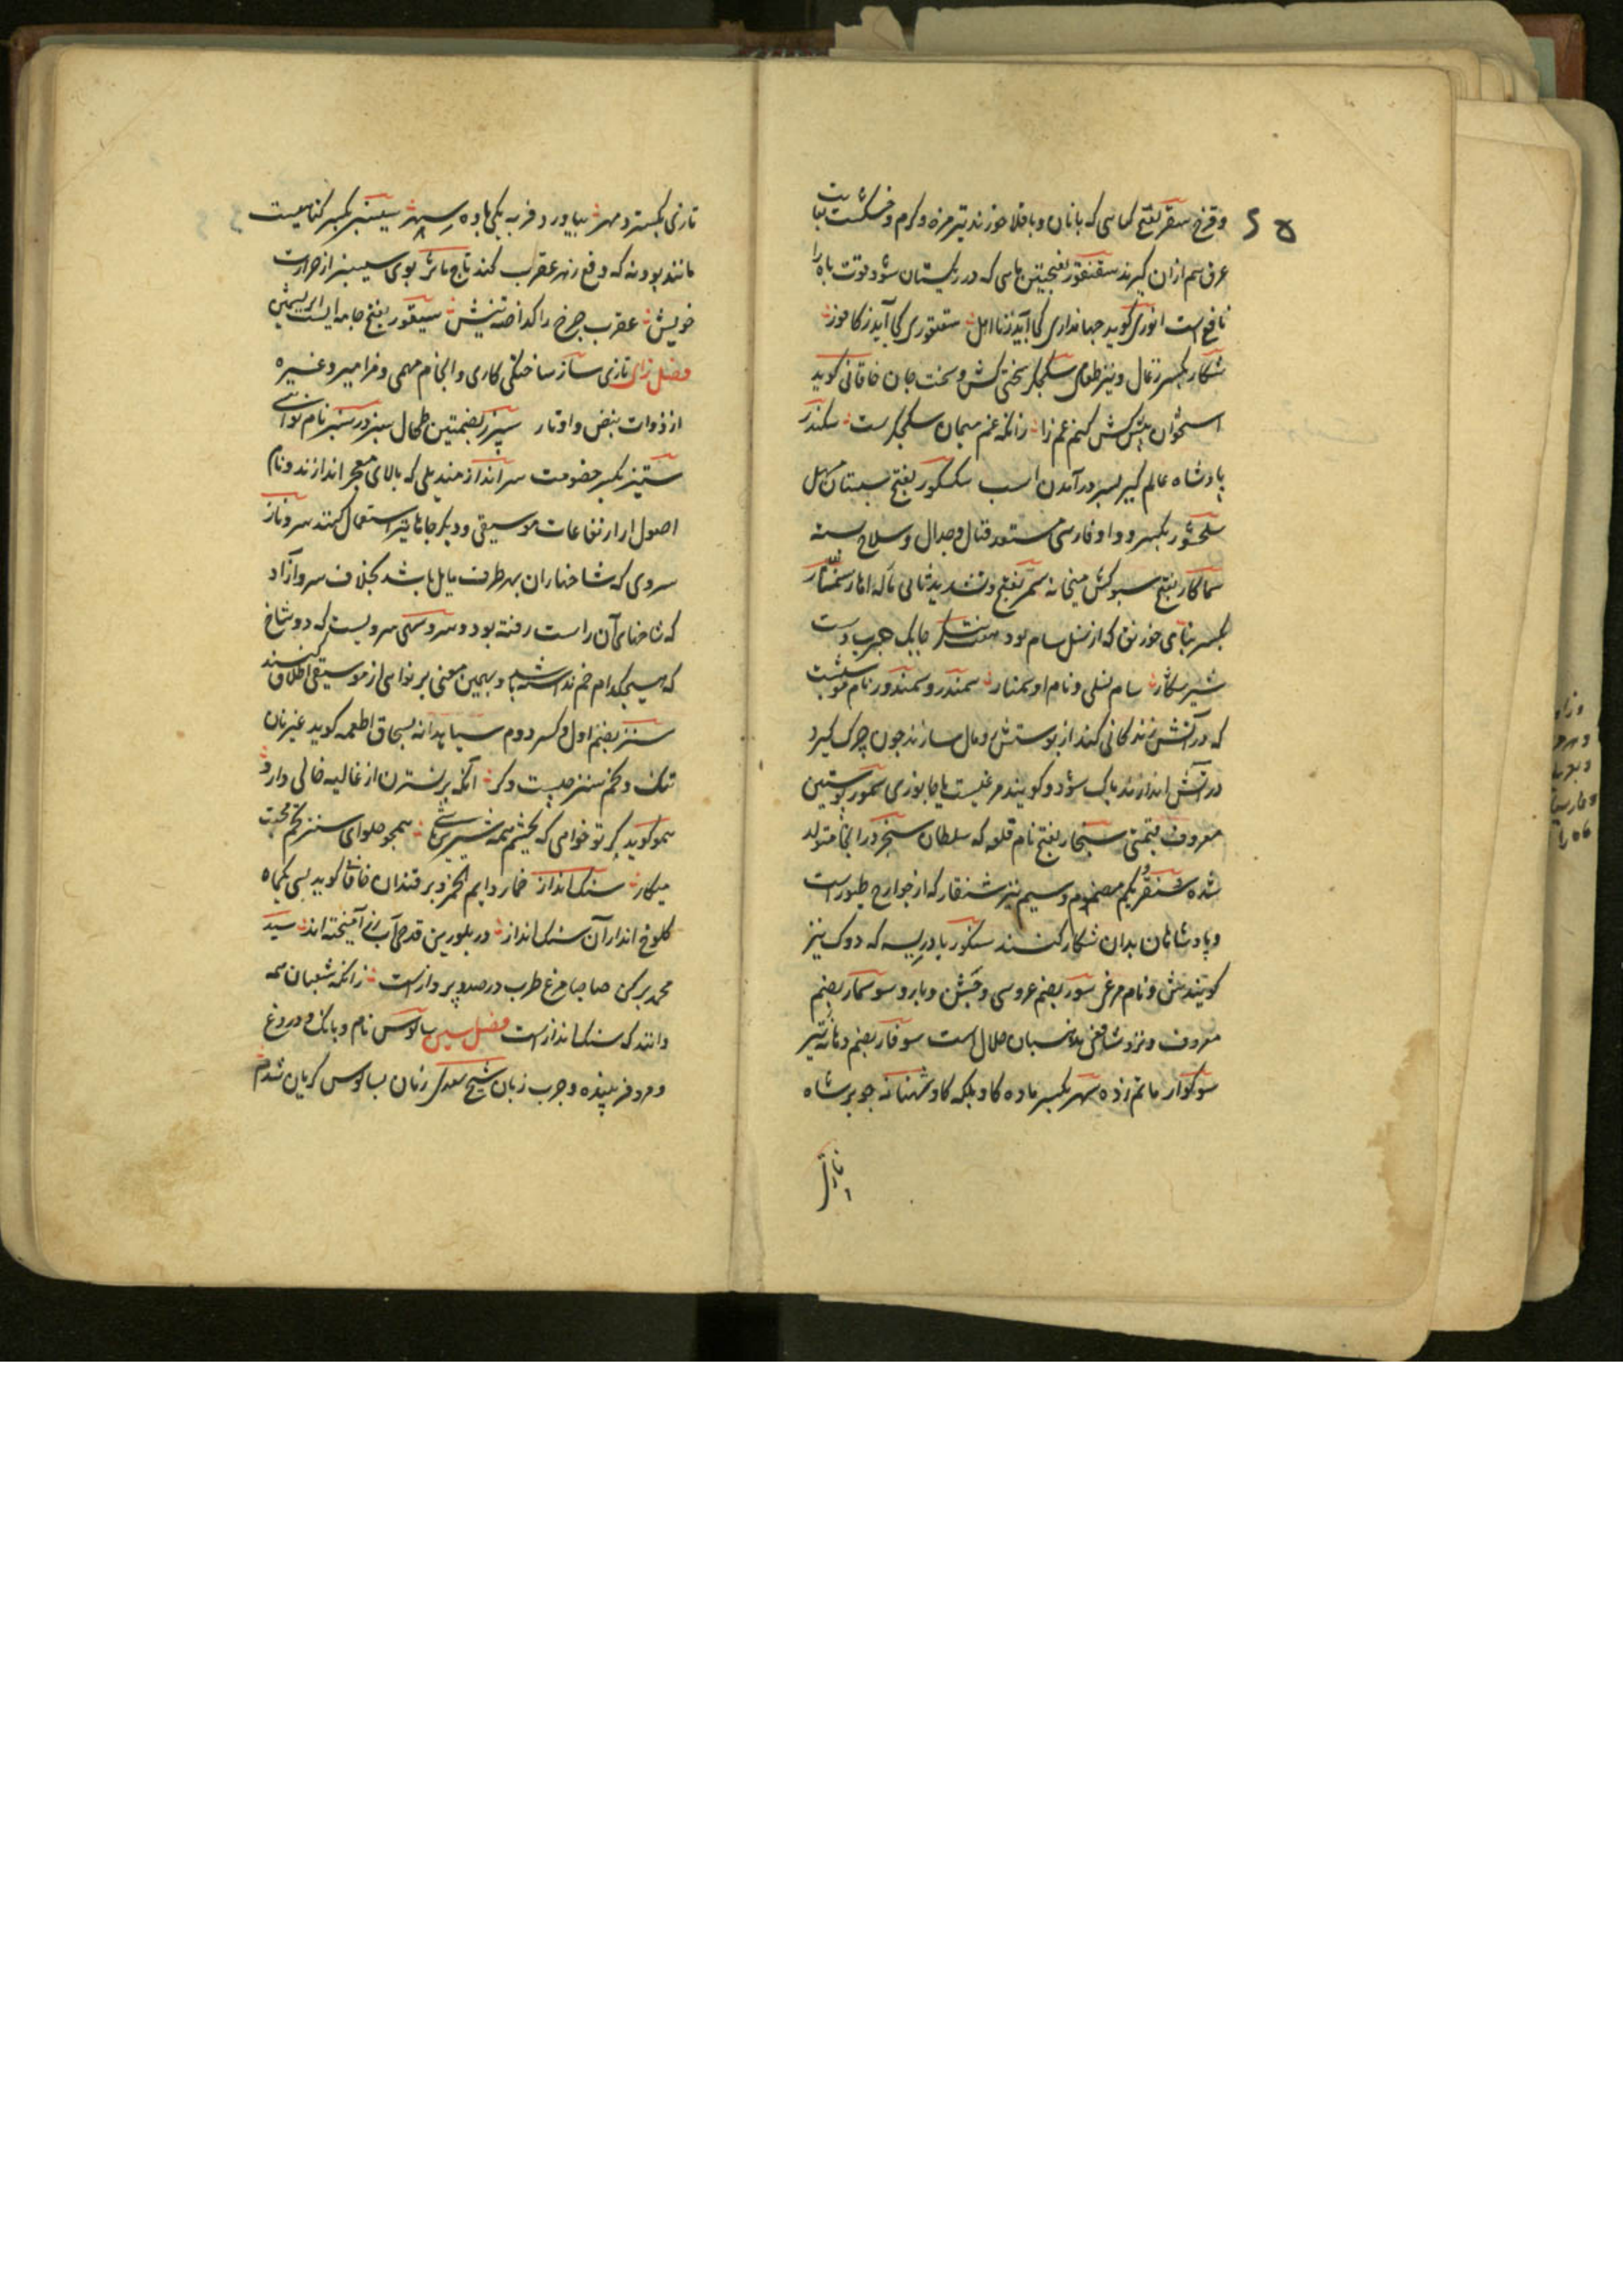 وقرخ سقر بفتح کماسی که بانان و باقلا خورند تیز مزه و کرم و خشکست نبات
عرق هم ازان کیرند سقنقور بفتحتین ماهی که در ریکستان شود قوت باه را
نافع است انوری کوید جهانداری کجا آید ز نااهل سقنقوری کجا آید ز کافور
شکار بکسر زغال و نیز طعام سکجلر سختی کش و سخت جان خاقانی کوید
استخوان پیش کش کنم غم را زانکه غم میهمان سکجکرست سکندر
پادشاه عالم کیر بسر درآمدن اسب سکسکور بفتح سبستان مهل
سلحشور بکسر و واو فارسی مستعد قتال و جدال و سلاح بسته
سماکار بفتح سبوکش میخانه سمر بفتح و تشدید ثانی ماله اهار سمنار
بکسر بنای خورنق که از نسل سام بود جابک چرب دست
شیر سکار سام نسلی و نام او سمنار سمندر و سمندور نام موشیست
که در آتش زندکانی کند از پوستش رومال سازند چون چرک کیرد
در آتش اندازند پاک شود و کویند مرغیست یا جانوری سمور پوستین
معروف قیمتی سنجار بفتح نام قلعه که سلطان سنجر در انجا متولد
شده شنقر بکم مضموم و سیم نیز شنقار که از جوارح طیور است
و پادشاهان بدان شکار کنند سنکور بادریسه که دوک نیز
کویندش و نام مرغی سور بضم عروسی و جشن و بارو سوسمار بضم
معروف و نزد شافعی مذهبان حلال است سوفار بضم دهانه تیر
سوکوار ماتم زده سهر بکسر ماده کاو بلکه کاو شهنانه جو بر شاه
تازی
تازی بکسترد مهر بیاورد فربه یکی ماده سهر سیسنبر بکسر کیاهیست
مانند پودنه که دفع زهر عقرب کند تاج ماثر بوی سیسنبر از حرارت
خویش عقرب چرخ را کداخته نیش سیقور بفتح جامه ایست ابریشمین
فصل زای تازی ساز ساختکی کاری و انجام مهمی و مزامیر و غیره
از ذوات نبض و اوتار سپرز بضمتین طحال سبز در سبز نام نوائی
ستیز بکسر خصومت سرانداز مندیلی که بالای معجر اندازند و نام
اصول از ارتفاعات موسیقی و دیکر جاها نیز استعمال کنند سروناز
سروی که شاخهاران بهر طرف مایل باشد بخلاف سرو آزاد
که شاخهای آن راست رفته بود و سروسهی سرویست که دو شاخ
که هیچکدام خم نداشته باشد و بهمین معنی بر نوایی از موسیقی اطلاق کنند
سنز بضم اول و کسر دوم سیاهدانه بسحاق اطعمه کوید غیر نان
تنک و تخم سنز چیست دکر آنکه بر نسترن از غالیه خالی دارد
همو کوید کر تو خواهی که بچشم همه شیرین باشی همچو حلوای سنز تخم محبت
میکار سنک انداز خمار دایم الخمر و برقندان خاقانی کوید بسی یکماه
کلوخ انداز آن سنک انداز در بلورین قدحی آب رز آمیخته اند سید
محمد برکی صاحبا مرغ طرب در صدد پرواز است زانکه شعبان همه
دانند که سنک انداز است فصل سین سالوس نام و بانک و دروغ
و مرد فریبنده و چرب زبان شیخ سعدی زنان بسالوس کریان شدم